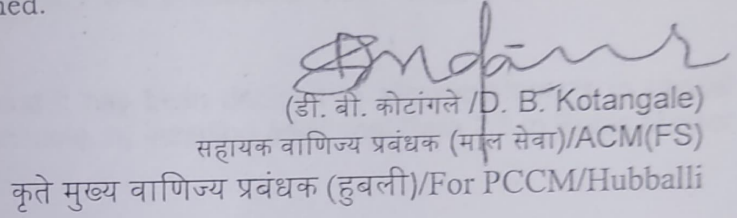 ned.
(डी. बी. कोटांगले /D. B. Kotangale)
सहायक वाणिज्य प्रबंधक (माल सेवा)/ACM(FS)
कृते मुख्य वाणिज्य प्रबंधक (हुबली)/For PCCM/Hubballi